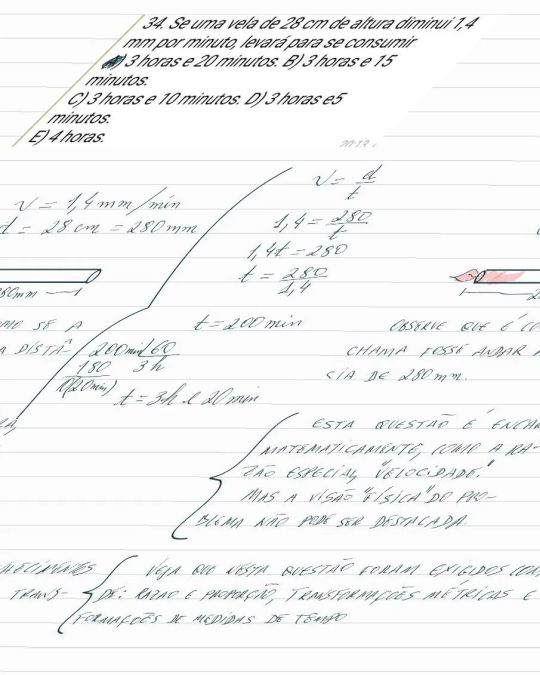 34. Se uma vela de 28 cm de altura diminui 1,4
mm por minuto, levará para se consumir
A) 3 horas e 20 minutos. B) 3 horas e 15
minutos.
C) 3 horas e 10 minutos. D) 3 horas e5
minutos.
E) 4 horas.
v = 1,4 mm/min
d = 28 cm = 280 mm
280mm
OMO SE A
A DISTÂ-
v = d/t
1,4 = 280/t
1,4t = 280
t = 280/1,4
t = 200 min
200min 60
180 3h
(20min)
t = 3h e 20 min
OBSERVE QUE É CO
CHAMA FOSSE ANDAR A
CIA DE 280 mm.
ESTA QUESTÃO É ENCAR
MATEMATICAMENTE, COMO A RA-
ZÃO ESPECIAL "VELOCIDADE."
MAS A VISÃO "FÍSICA" DO PRO-
BLEMA NÃO PODE SER DESTACADA.
VEJA QUE NESTA QUESTÃO FORAM EXIGIDOS CON
DE: RAZÃO E PROPORÇÃO, TRANSFORMAÇÕES MÉTRICAS E
FORMAÇÕES DE MEDIDAS DE TEMPO
HECIMENTOS
TRANS-